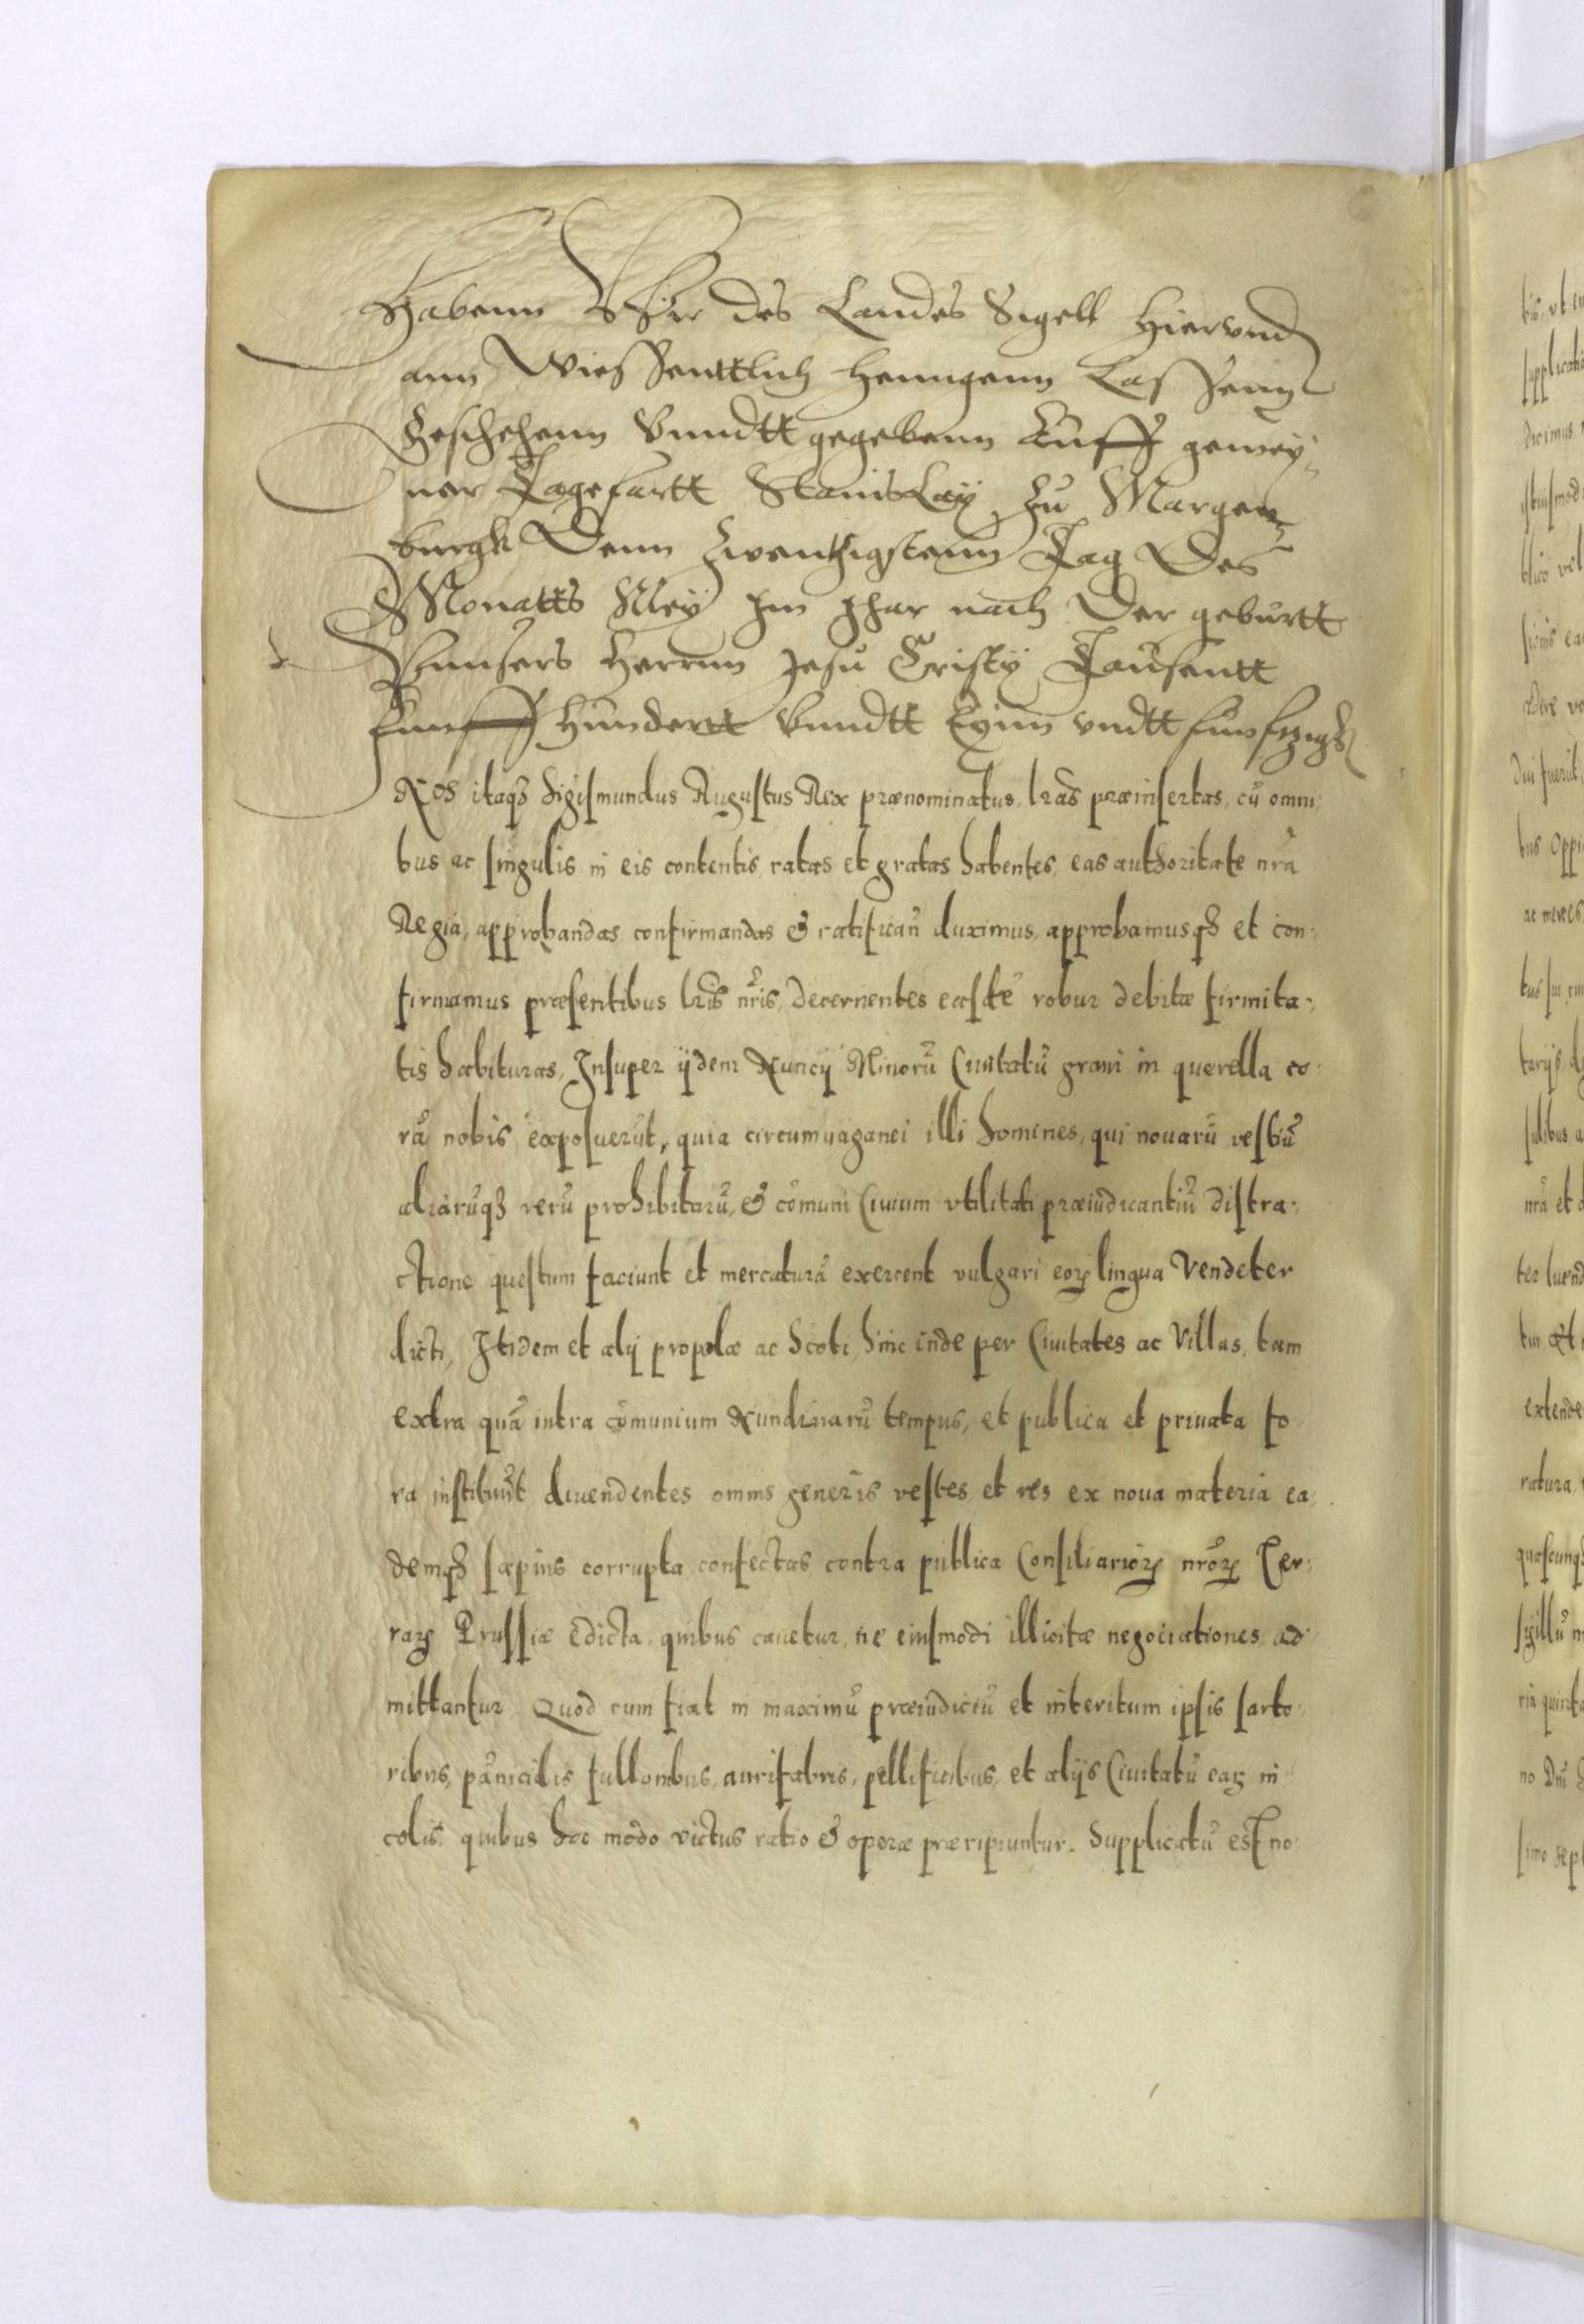 Habenn Wir des Landes Sigell Hiervnd
ann Wiessenttlich Henngenn Lassenn
Geschehenn Vnndtt gegebenn Auff gemey
ner Tagefartt Stanislay zu Margen
burgk Denn Zwentzigstenn Tag Des
Monatts Mey Im Jhar nach Der geburtt
Vnnsers Herrnn Jesu Cristy Tausentt
funff Hundertt Vnndtt Eynn vndtt funfftzigk
Nos itaqз Sigismundus Augustus Rex prænominatus, lras præinsertas, cũ omni
bus ac singulis in eis contentis, ratas et gratas habentes, eas authoritate nrã
Regia, approbandas confirmandas & ratifican̄ duximus, approbamusqз et con
firmamus præsentibus lris nr̃is, decernentes easdẽ robur debitæ firmita
tis habituras, Insuper ijdem Nuncij Minorũ Ciuitatũ graui in querella co
rã nobis exposuerũt, quia circumuaganei illi homines, qui nouarũ vestiũ
aliarũqз rerũ prohibitarũ, & cõmuni Ciuium vtilitati præiudicantiũ distra
ctione questum faciunt et mercaturã exercent vulgari eoꝝ lingua Vendeter
dicti, Itidem et alij propolæ ac Scoti, hinc inde per Ciuitates ac Villas, tam
extra quã intra cõmunium Nundinarũ tempus, et publica et priuata fo
ra instituũt diuendentes omnis generis vestes et res ex noua materia ea
demqз sæpius corrupta confectas contra publica Consiliarioꝝ nr̃oꝝ Ter
raꝝ Prussiæ Edicta, quibus cauetur, ne eiusmodi illicitæ negociationes ad
mittantur Quod cum fiat in maximũ præiudiciũ et interitum ipsis sarto
ribus, pãnicidis fullonibus, aurifabris, pellificibus, et alijs Ciuitatũ eaꝝ in
colis, quibus hoc modo victus ratio & operæ præripiuntur. Supplicatũ est no